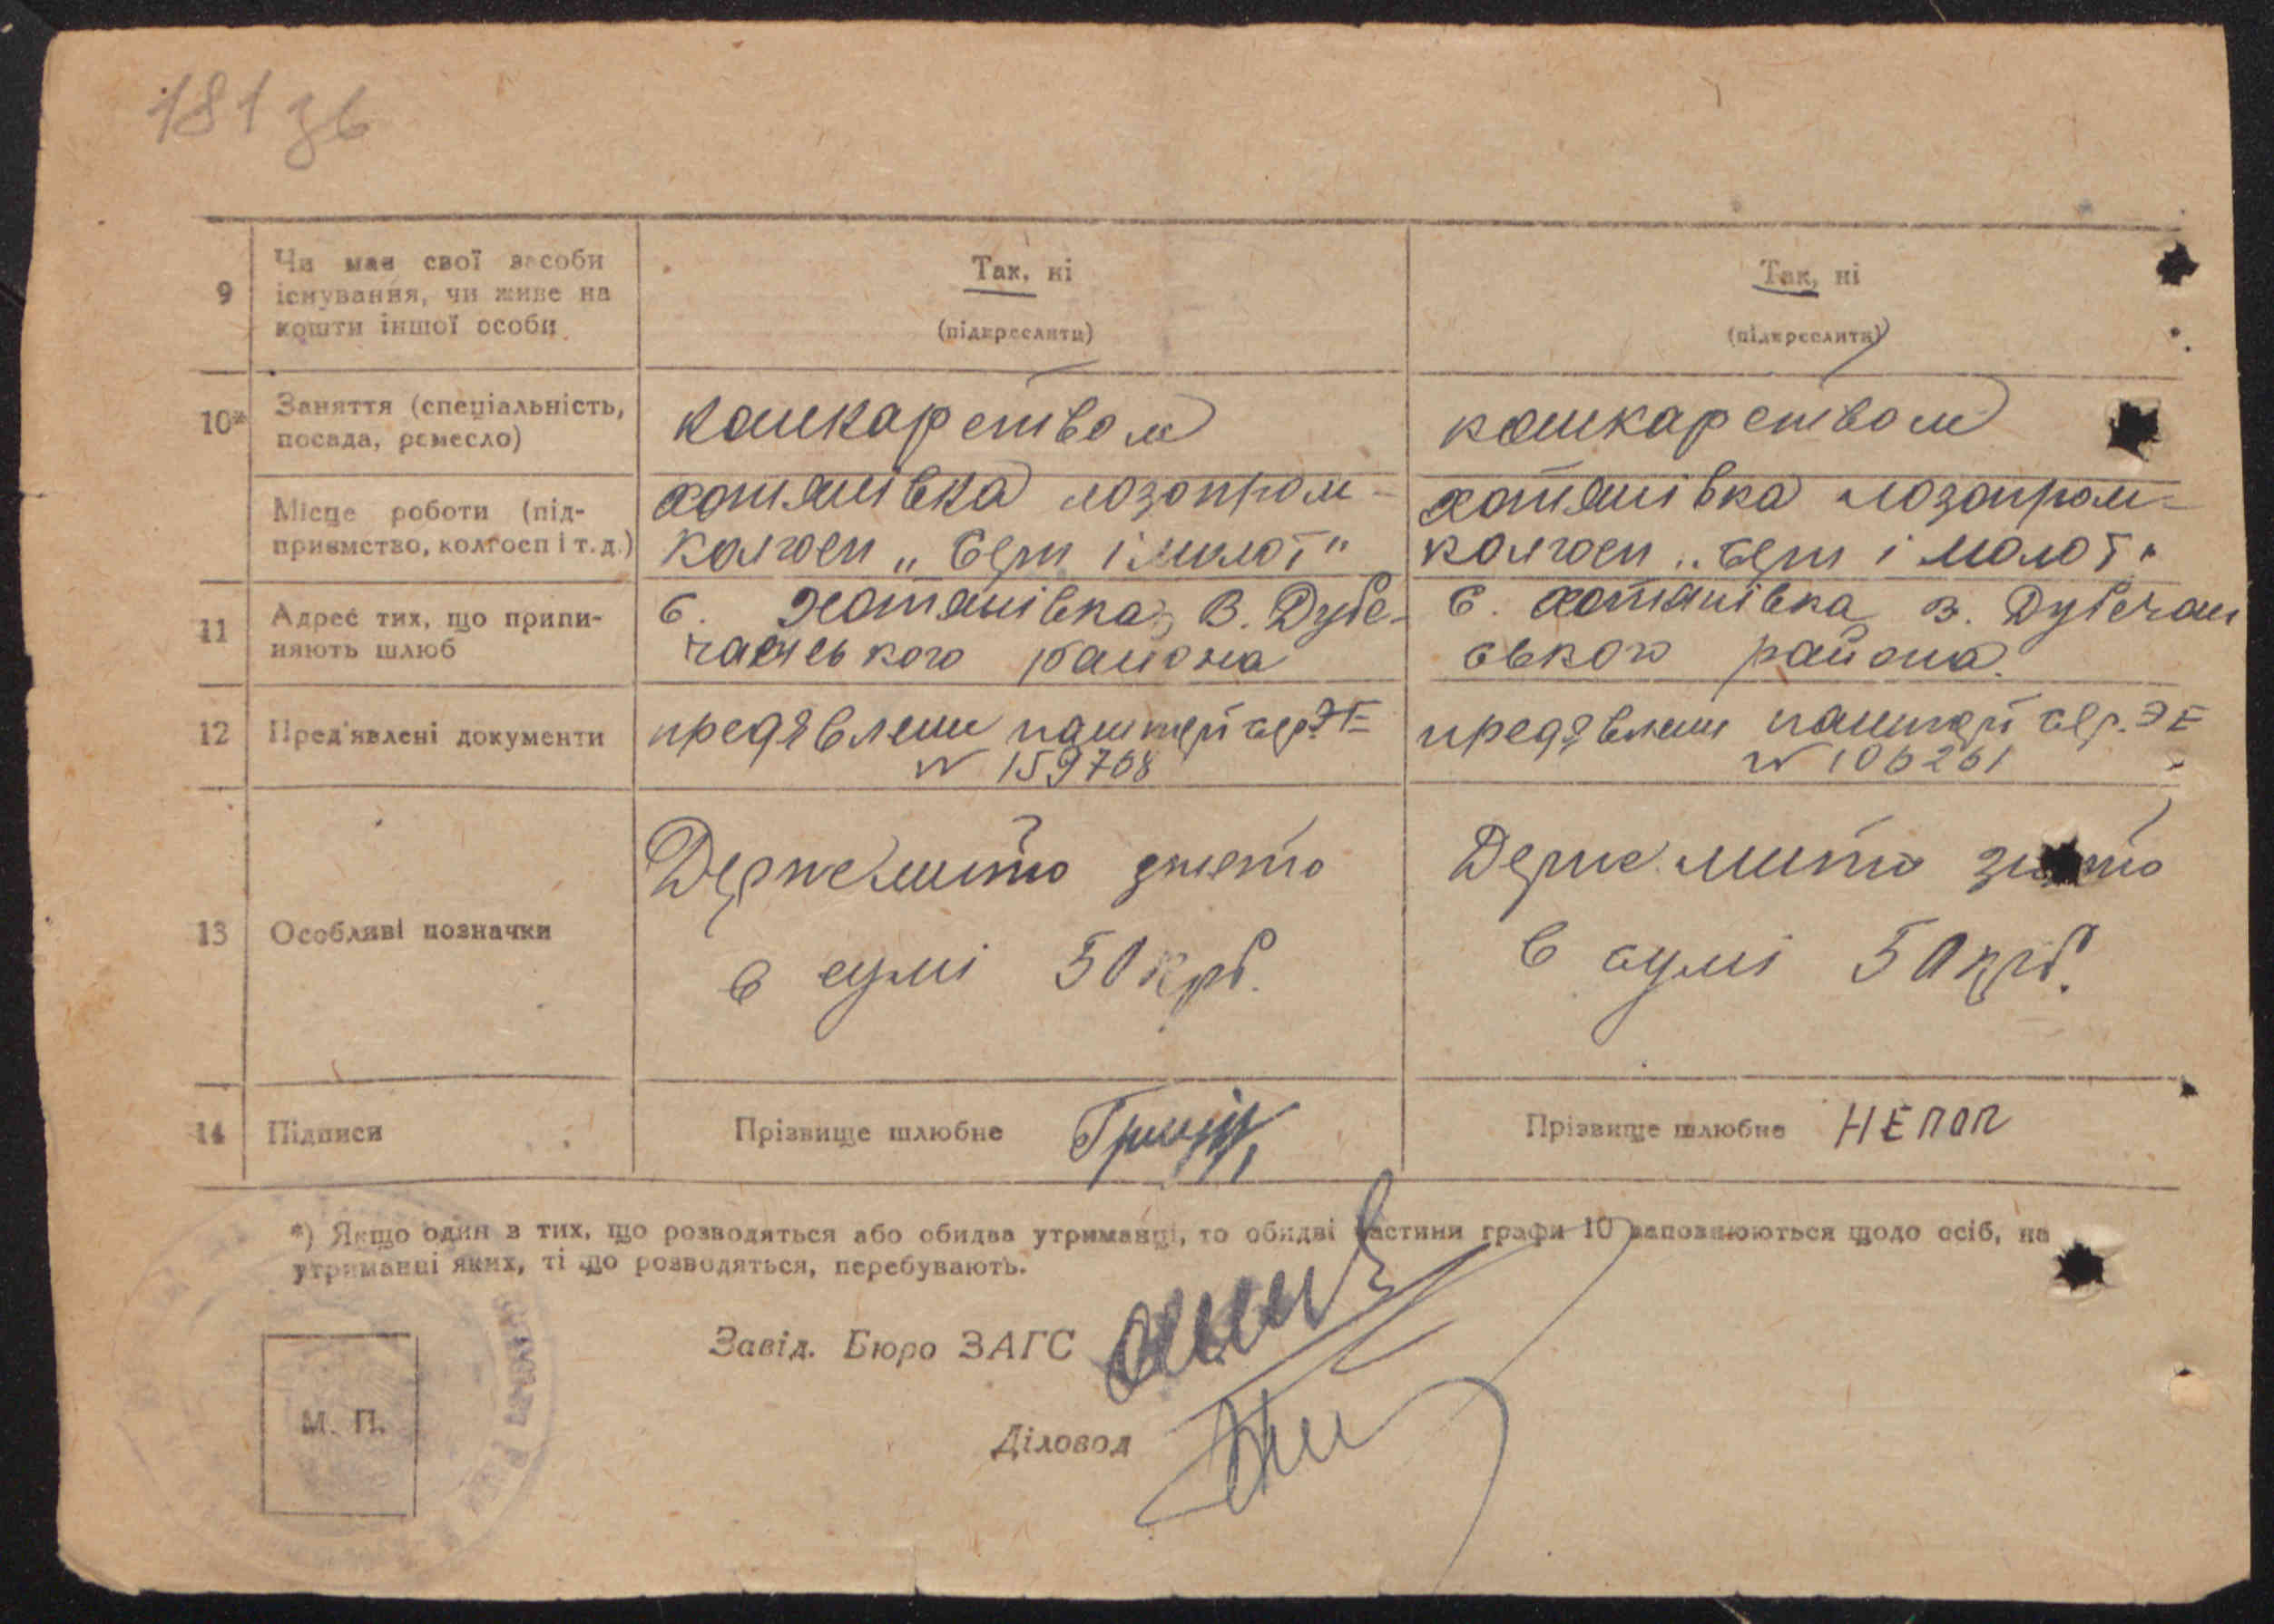 181 зв
9
Чи має свої засоби
існування, чи живе на
кошти іншої особи
Так, ні
(підкреслити)
Так, ні
(підкреслити)
10*
Заняття (спеціальність,
посада, ремесло)
кошкарством
кошкарством
Місце роботи (під-
приємство, колгосп і т. д.)
хотянівка лозопром-
колгосп „Серп і молот"
хотянівка лозопром-
колгосп „Серп і молот"
11
Адрес тих, що припи-
няють шлюб
с. Хотянівка, В. Дубе-
чанського района
с. хотянівка в. Дубечан
ського района.
12
Пред'явлені документи
предявлен пашпорт сер. ЭЕ
N 159768
предявлен пашпорт сер. ЭЕ
N 106261
13
Особливі позначки
Держмито знято
в сумі 50 крб.
Держ мито знято
в сумі 50 крб.
14
Підписи
Прізвище шлюбне
Прізвище шлюбне НЕПОП
*) Якщо один в тих, що розводяться або обидва утриманці, то обидві частини графи 10 заповнюються щодо осіб, на
утриманні яких, ті що розводяться, перебувають.
Завід. Бюро ЗАГС
Діловод
М. П.